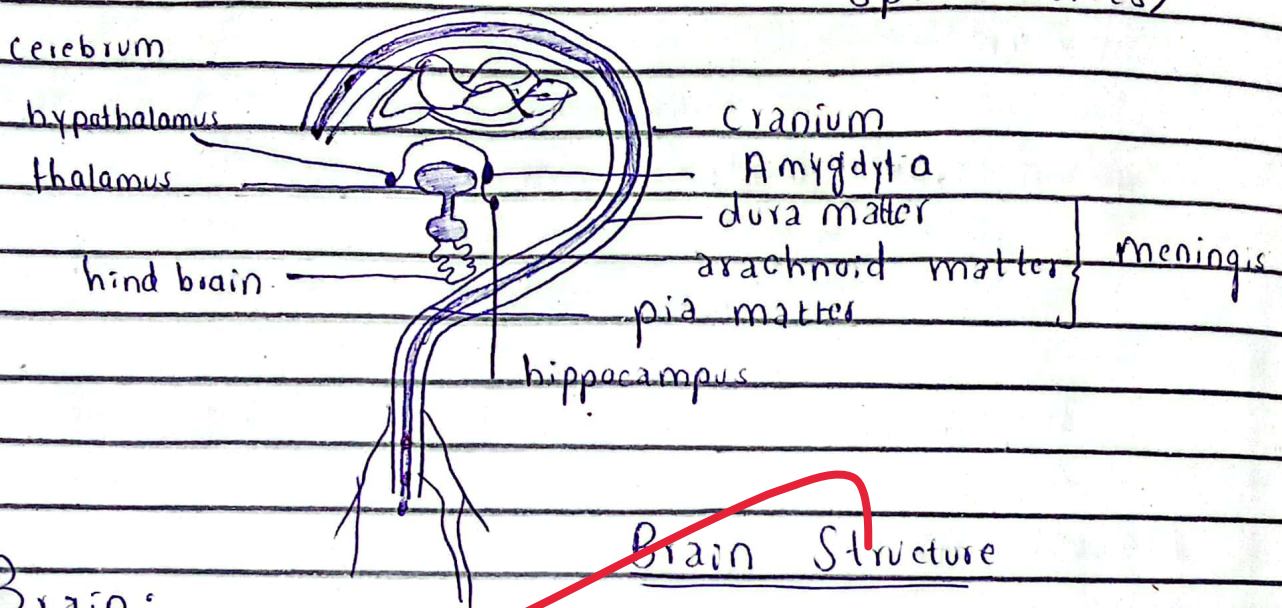 cerebrum
hypothalamus
thalamus
hind brain
Cranium
Amygdyla
dura matter
arachnoid matter
pia matter
meningis
hippocampus
Brain Structure
Brain: